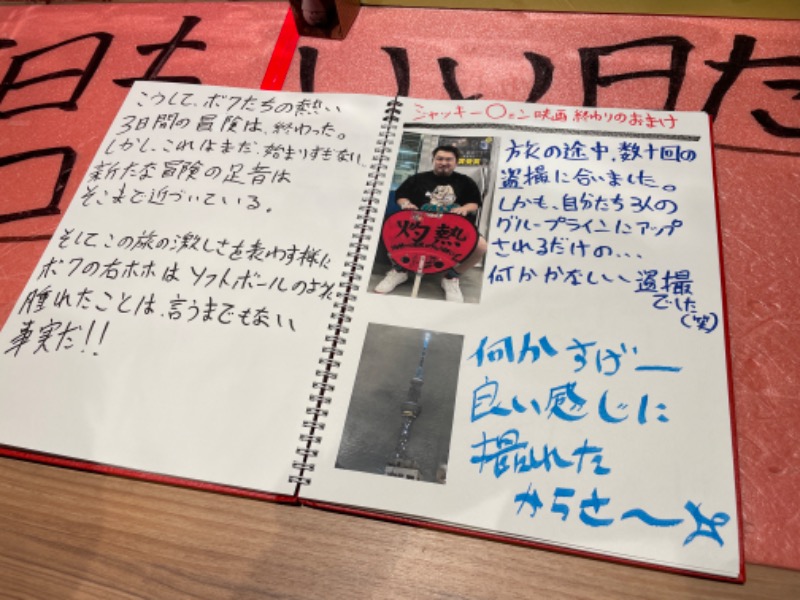 日も
いい日だ
こうして、ボクたちの熱い
3日間の冒険は、終わった。
しかし、これはまだ、始まりすぎない
新たな冒険の足音は
そこまで近づいている。
そしてこの旅の激しさを表わす様に
ボクの右ホホは ソフトボールのように
腫れたことは、言うまでもない
事実だ!!
ジャッキー〇ェン映画 終わりのおまけ
旅の途中、数十回の
盗撮に合いました。
しかも、自分たち3人の
グループラインにアップ
されるだけの…
何かかなしい盗撮
でした
(笑)
灼熱
何かすげー
良い感じに
撮れた
からさ〜